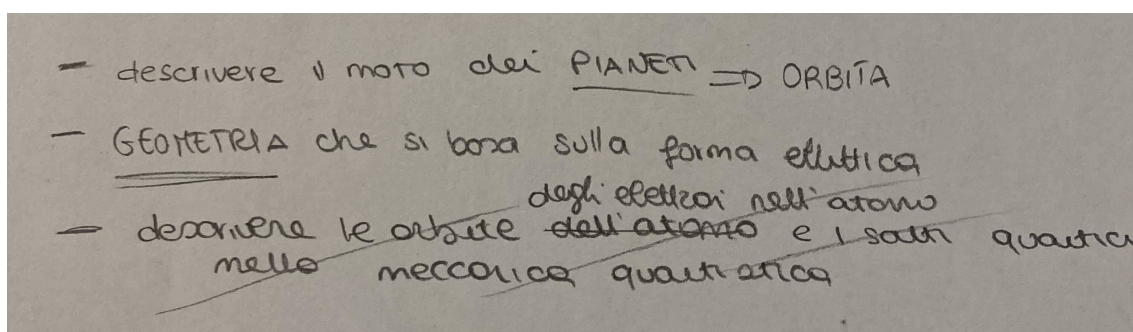 - descrivere il moto dei PIANETI => ORBITA
- GEOMETRIA che si basa sulla forma ellittica
degli elettroni nell'atomo
- descrivere le orbite dell'atomo e i salti quantici
nella meccanica quantistica